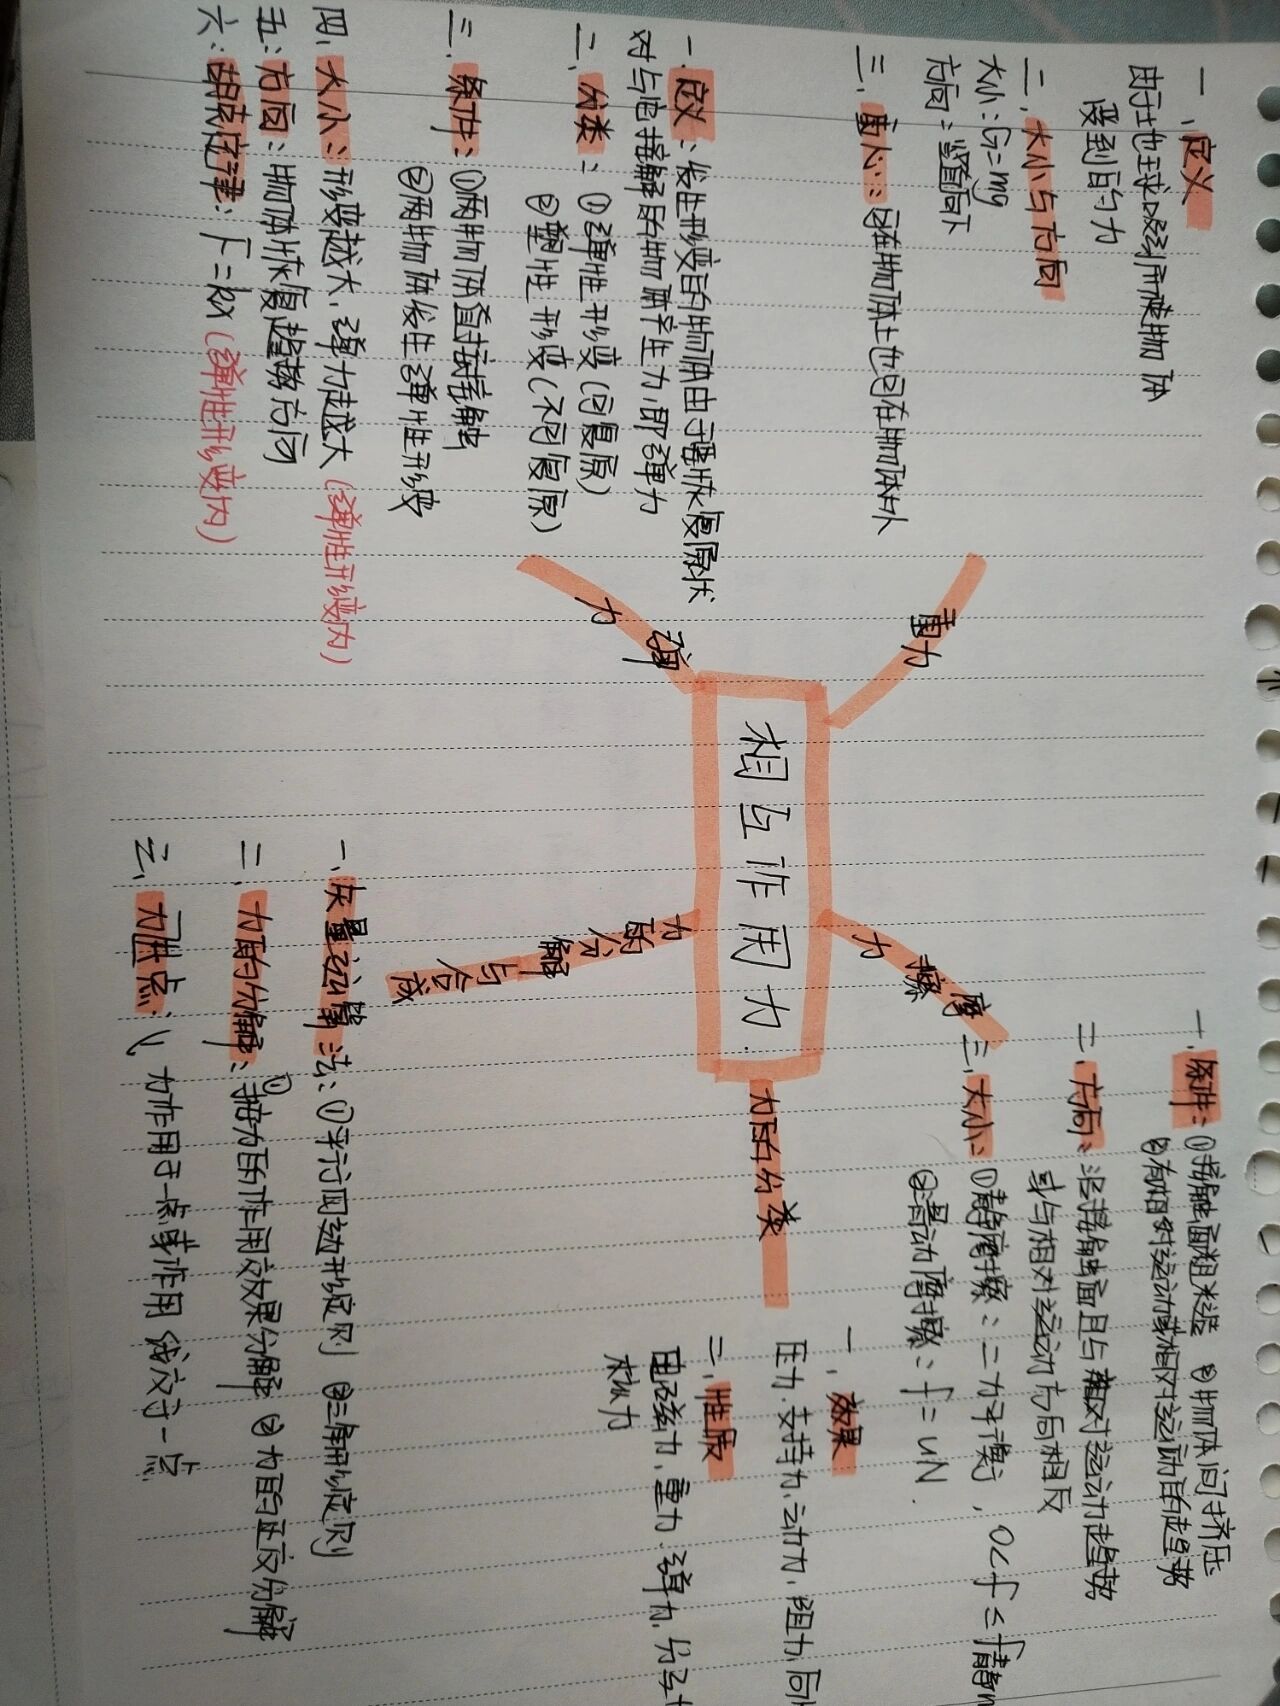 相互作用力
重力
一、定义
由于地球吸引而使物体
受到的力
二、大小与方向
大小:G=mg
方向:竖直向下
三、重心:可在物体上也可在物体外
弹力
一、定义:发生形变的物体由于要恢复原状
对与它接触的物体产生力,即弹力
二、分类:①弹性形变(可复原)
②塑性形变(不可复原)
三、条件:①两物体直接接触
②两物体发生弹性形变
四、大小:形变越大,弹力越大(弹性形变内)
五:方向:物体恢复趋势方向
六:胡克定律:F=kx(弹性形变内)
摩擦力
一、条件:①接触面粗糙 ②物体间挤压
③有相对运动或相对运动的趋势
二、方向:沿接触面且与相对运动趋势
或与相对运动方向相反
三、大小:①静摩擦:二力平衡,0<f≤f静m
②滑动摩擦:f=uN.
力的分类
一、效果
压力.支持力、动力、阻力、
二、性质
电磁力、重力.弹力、分子
核力
力的分解与合成
一、矢量运算法:①平行四边形定则 ②三角形定则
二、力的分解:①按力的作用效果分解 ②力的正交分解
三、力共点:力作用于一点或作用线交于一点